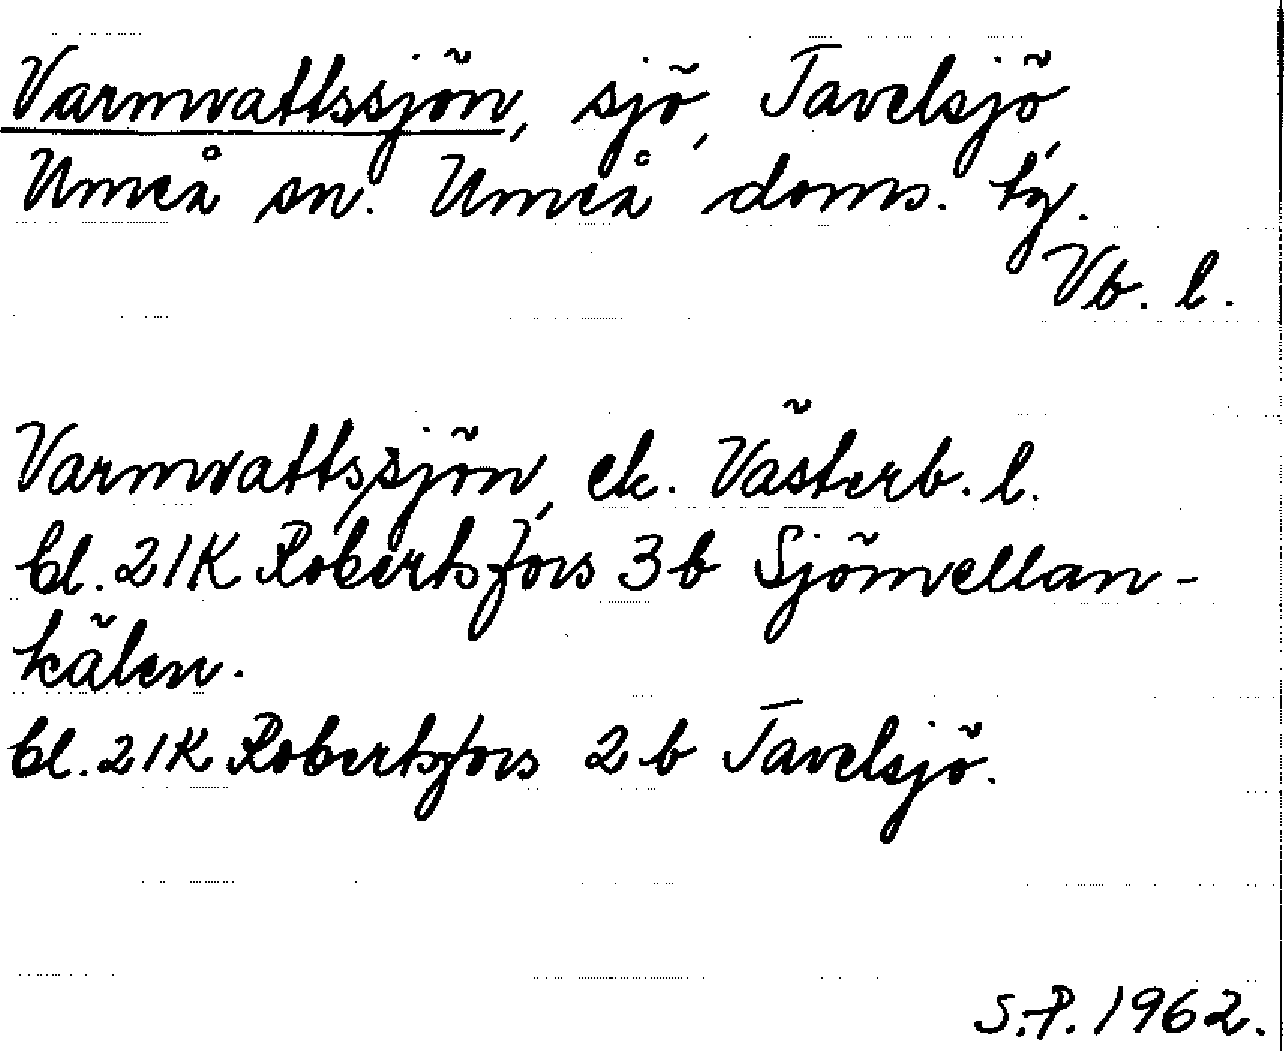 Varmvattssjön, sjö, Tavelsjö,
Umeå sn. Umeå doms. tg.
Vb. l.
Varmvattssjön, ek. Västerb. l.
bl. 21K Robertsfors 3b Sjömellan-
kälen.
bl. 21K Robertsfors 2b Tavelsjö.
S.P. 1962.